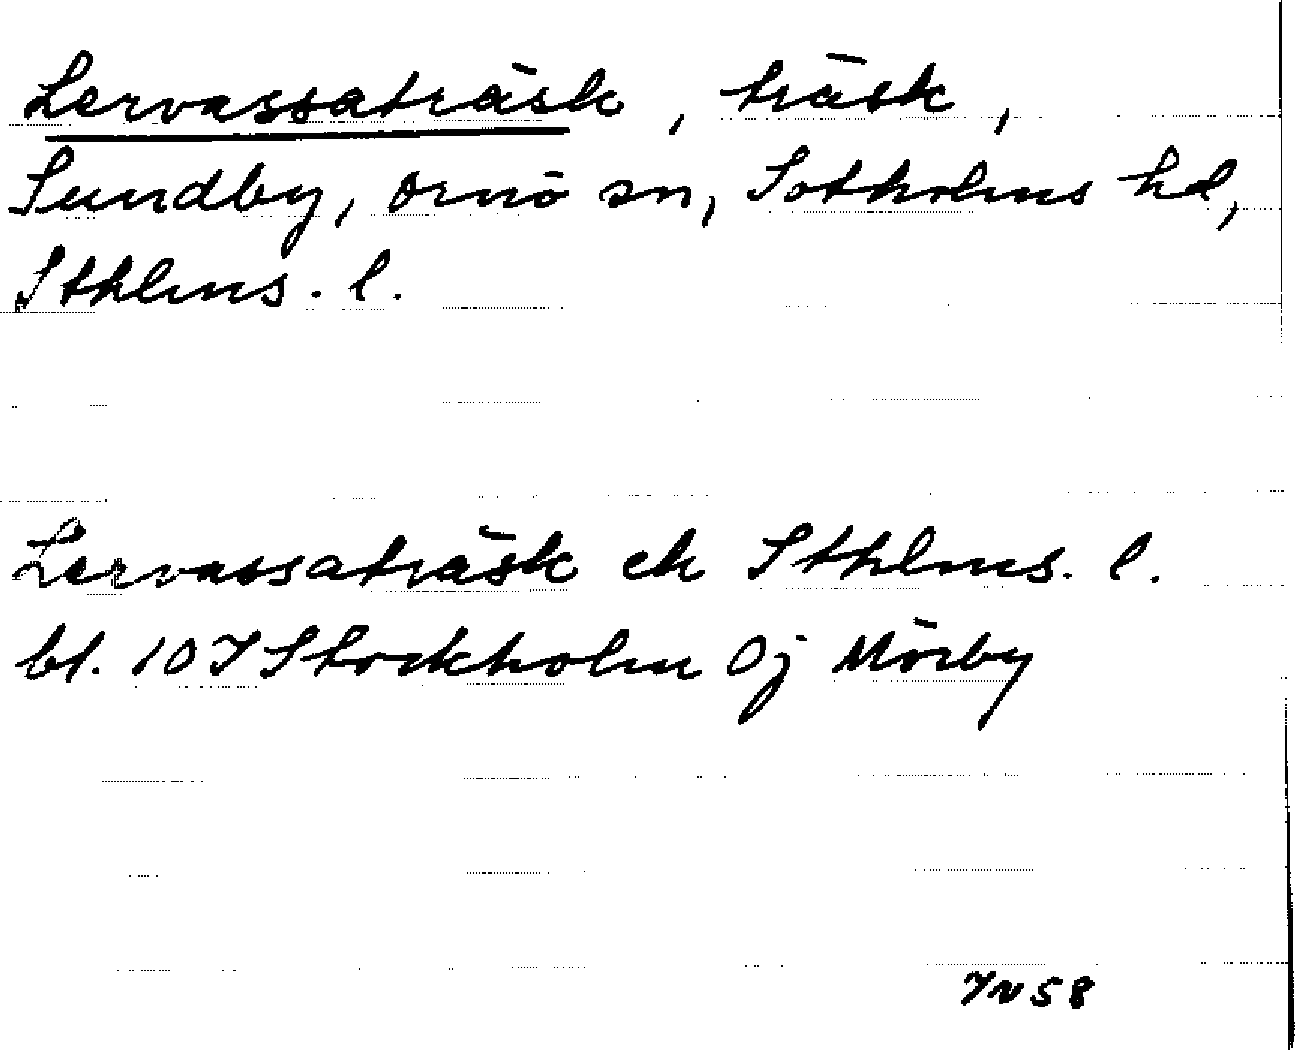 Lervassaträsk, träsk,
Sundby, Ornö sn, Sotholms hd,
Sthlms. l.
Lervassaträsk ek Sthlms. l.
bl. 10 I Stockholm Oj Mörby
IN 58